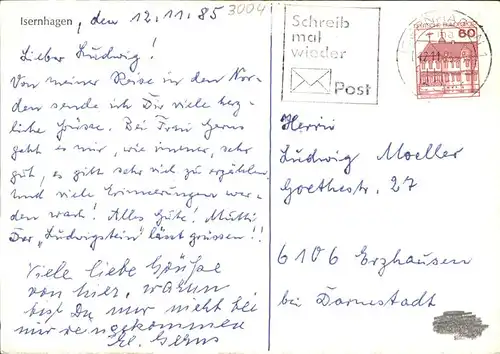 Isernhagen, den 12.11.85
3004
Lieber Ludwig!
Von meiner Reise in den Nor-
den sende ich Dir viele herz-
liche Grüsse. Bei Frau Gerns
geht es mir, wie immer, sehr
gut, es gibt sehr viel zu erzählen
und viele Erinnerungen wer-
den wach! Alles Gute! Mutti
Der "Ludwigstein" lässt grüssen!!
Viele liebe Grüsse
von hier, warum
bist Du nur nicht bei
mir reingekommen
Gerns
Schreib
mal
wieder
Post
60
Herrn
Ludwig Moeller
Goethestr. 27
6106 Erzhausen
bei Darmstadt